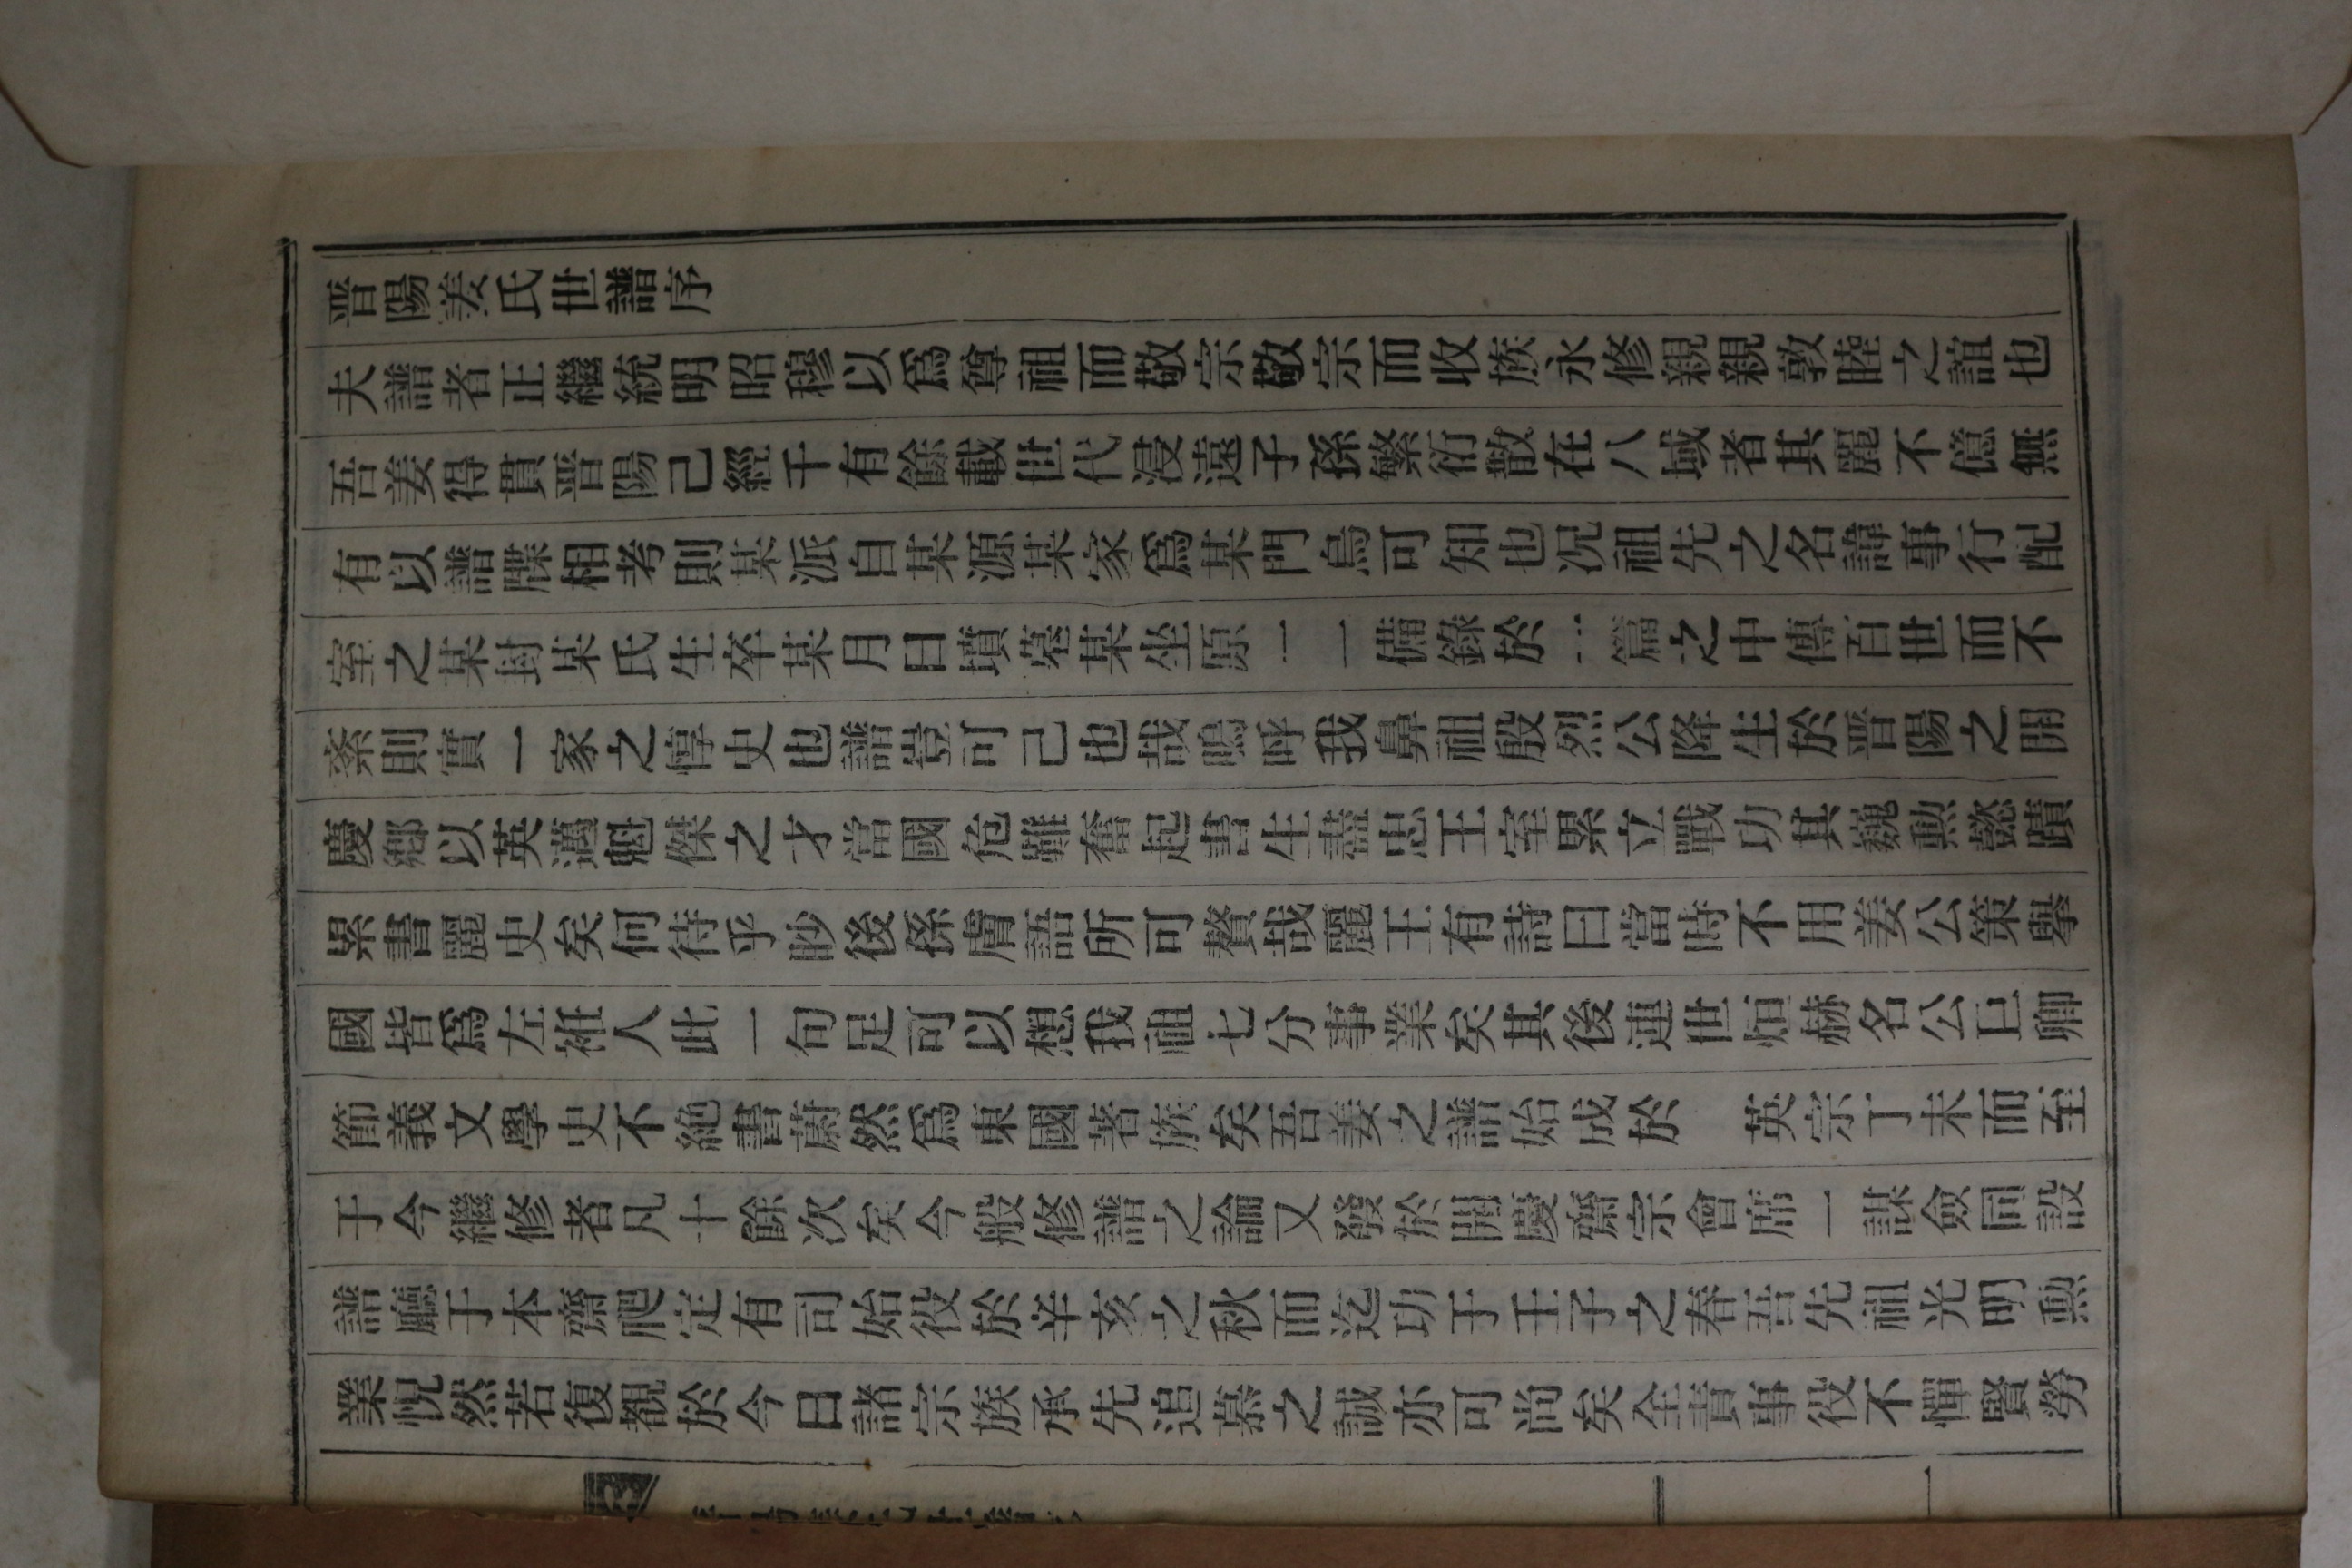 晋陽姜氏世譜序
夫譜者正繼統明昭穆以爲尊祖而敬宗敬宗而收族永修親親敦睦之誼也
吾姜得貫晋陽已經千有餘載世代浸遠子孫繁衍散在八域者其麗不億無
有以譜牒相考則某派自某源某家爲某門烏可知也况祖先之名諱事行配
室之某封某氏生卒某月日墳墓某坐原一一備錄於一篇之中傳百世而不
紊則實一家之惇史也譜豈可已也哉嗚呼我鼻祖殷烈公降生於晋陽之開
慶鄕以英邁魁傑之才當國危難奮起書生盡忠王室累立戰功其巍勳懿蹟
累書麗史矣何待乎眇後孫膚語所可贅哉麗王有詩曰當時不用姜公策擧
國皆爲左袵人此一句足可以想我祖七分事業矣其後連世烜赫名公巨卿
節義文學史不絶書蔚然爲東國著族矣吾姜之譜始成於 英宗丁未而至
于今繼修者凡十餘次矣今般修譜之論又發於開慶齋宗會席一謀僉同設
譜廳于本齋爬定有司始役於辛亥之秋而迄功于壬子之春吾先祖光明勳
業怳然若復覩於今日諸宗族承先追慕之誠亦可尚矣全責事役不憚賢勞